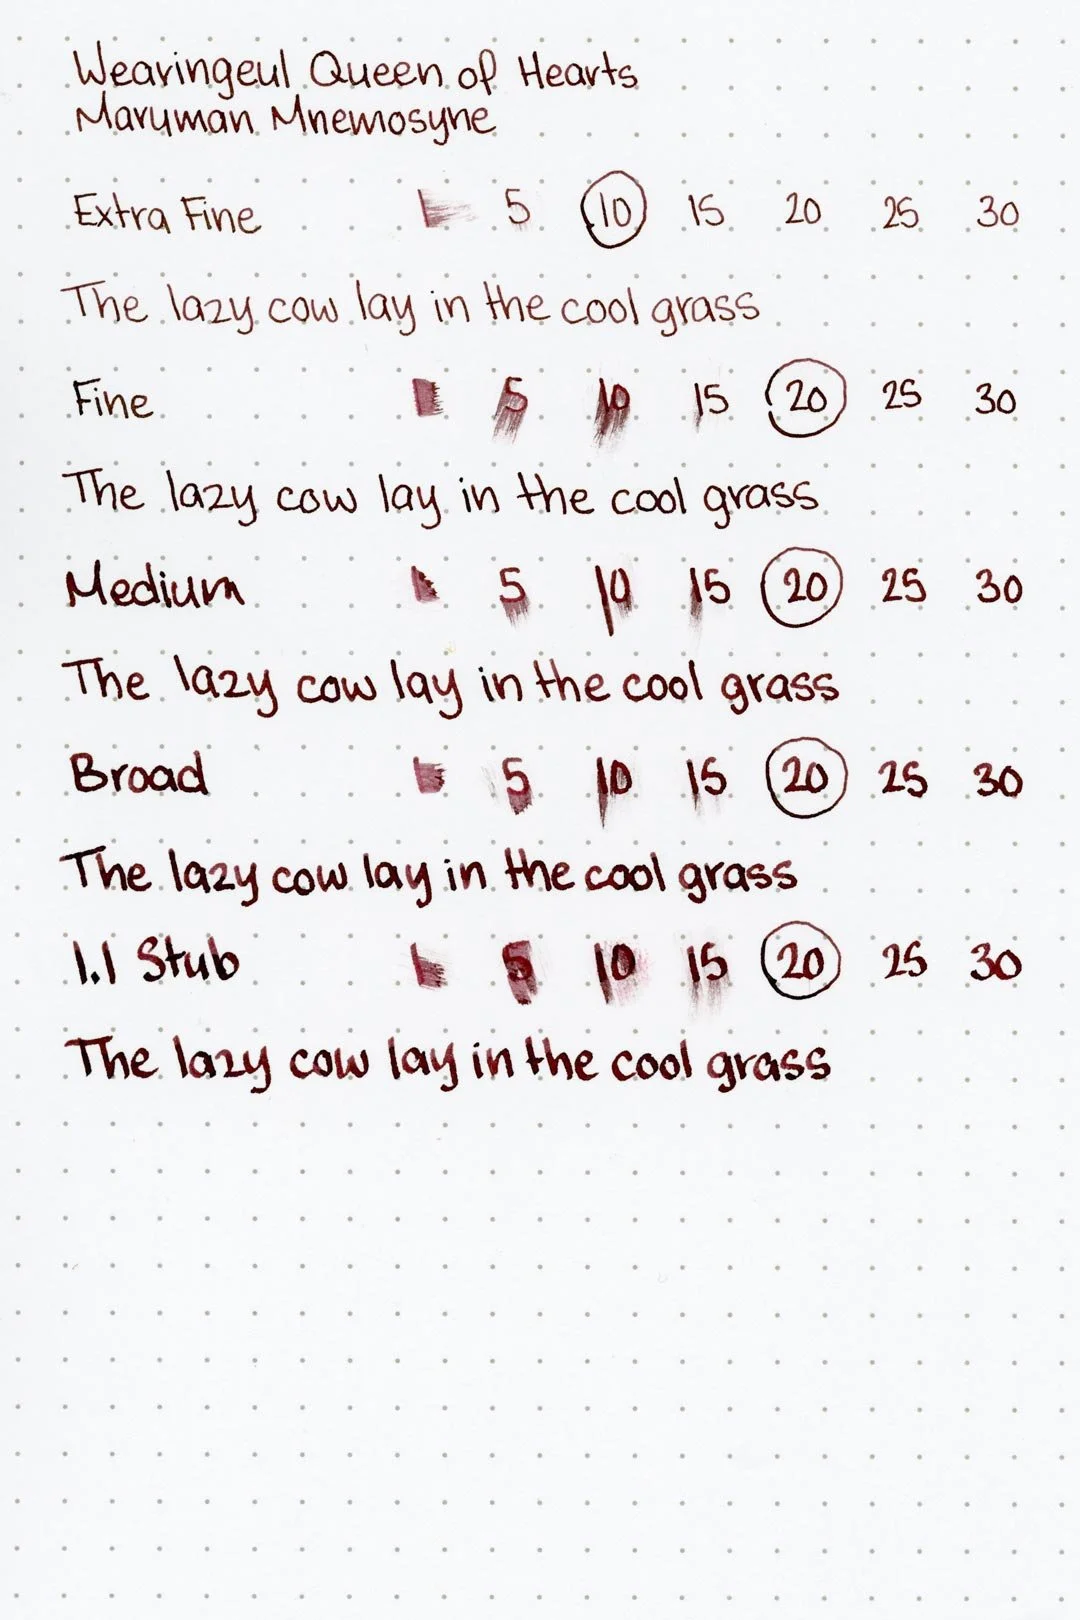 Wearingeul Queen of Hearts
Maruman Mnemosyne
Extra Fine 5 10 15 20 25 30
The lazy cow lay in the cool grass
Fine 5 10 15 20 25 30
The lazy cow lay in the cool grass
Medium 5 10 15 20 25 30
The lazy cow lay in the cool grass
Broad 5 10 15 20 25 30
The lazy cow lay in the cool grass
1.1 Stub 5 10 15 20 25 30
The lazy cow lay in the cool grass